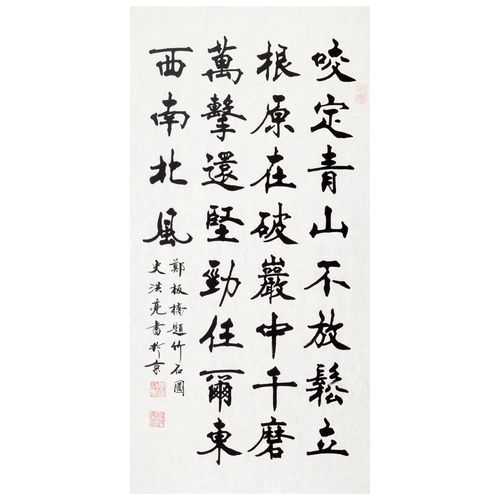 咬定青山不放鬆立
根原在破巖中千磨
萬擊還堅勁任爾東
西南北風
鄭板橋題竹石圖
史洪亮書於京